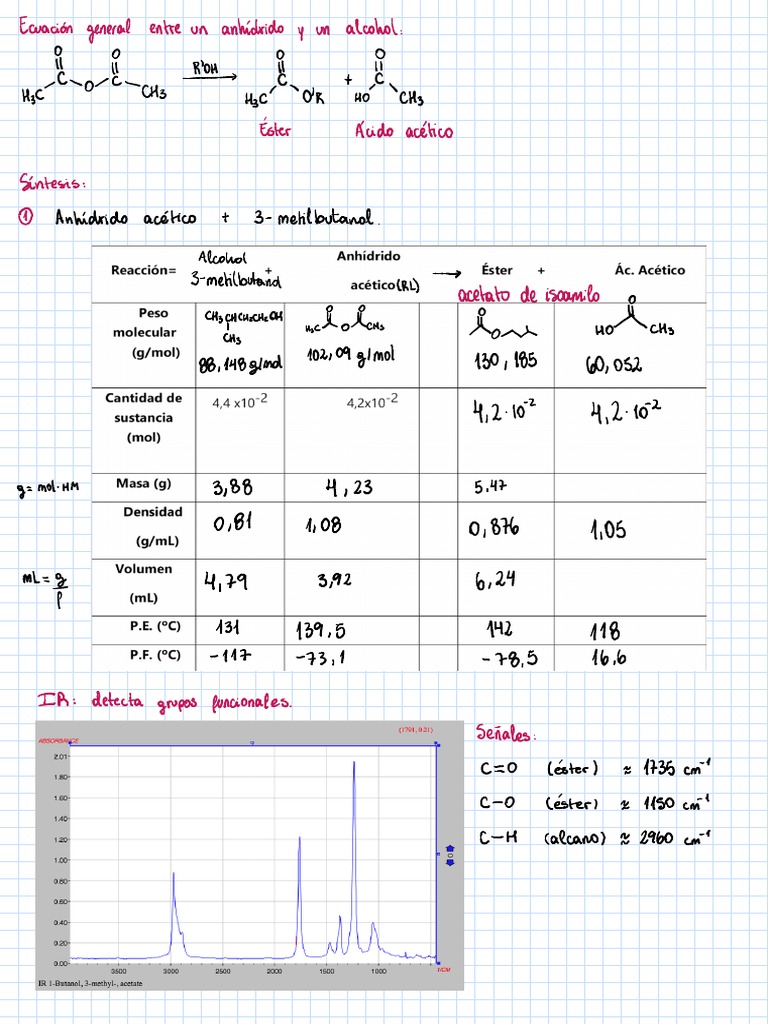 Ecuación general entre un anhídrido y un alcohol:
O O R'OH O O
C C C + C
H₃C O CH3 H₃C O'R HO CH₃
Éster Ácido acético
Síntesis:
① Anhídrido acético + 3-metilbutanol.
Reacción= Alcohol 3-metilbutanol + Anhídrido acético(RL) → Éster + Ác. Acético
acetato de isoamilo
Peso molecular (g/mol) CH₃CHCH₂CH₂OH CH₃ H₃C O O O CH₃ O O O HO CH₃
88,148 g/mol 102,09 g/mol 130,185 60,052
Cantidad de sustancia (mol) 4,4 x10⁻² 4,2x10⁻² 4,2·10⁻² 4,2·10⁻²
g= mol·HM Masa (g) 3,88 4,23 5.47
Densidad (g/mL) 0,81 1,08 0,876 1,05
mL = g/ρ Volumen (mL) 4,79 3,92 6,24
P.E. (ºC) 131 139,5 142 118
P.F. (ºC) -117 -73,1 -78,5 16,6
IR: detecta grupos funcionales.
(1791, 0.21)
ABSORBANCE
2.01
1.80
1.60
1.40
1.20
1.00
0.80
0.60
0.40
0.20
0.00
3500 3000 2500 2000 1500 1000
1/CM
IR 1-Butanol, 3-methyl-, acetate
Señales:
C=O (éster) ≈ 1735 cm⁻¹
C-O (éster) ≈ 1150 cm⁻¹
C-H (alcano) ≈ 2960 cm⁻¹